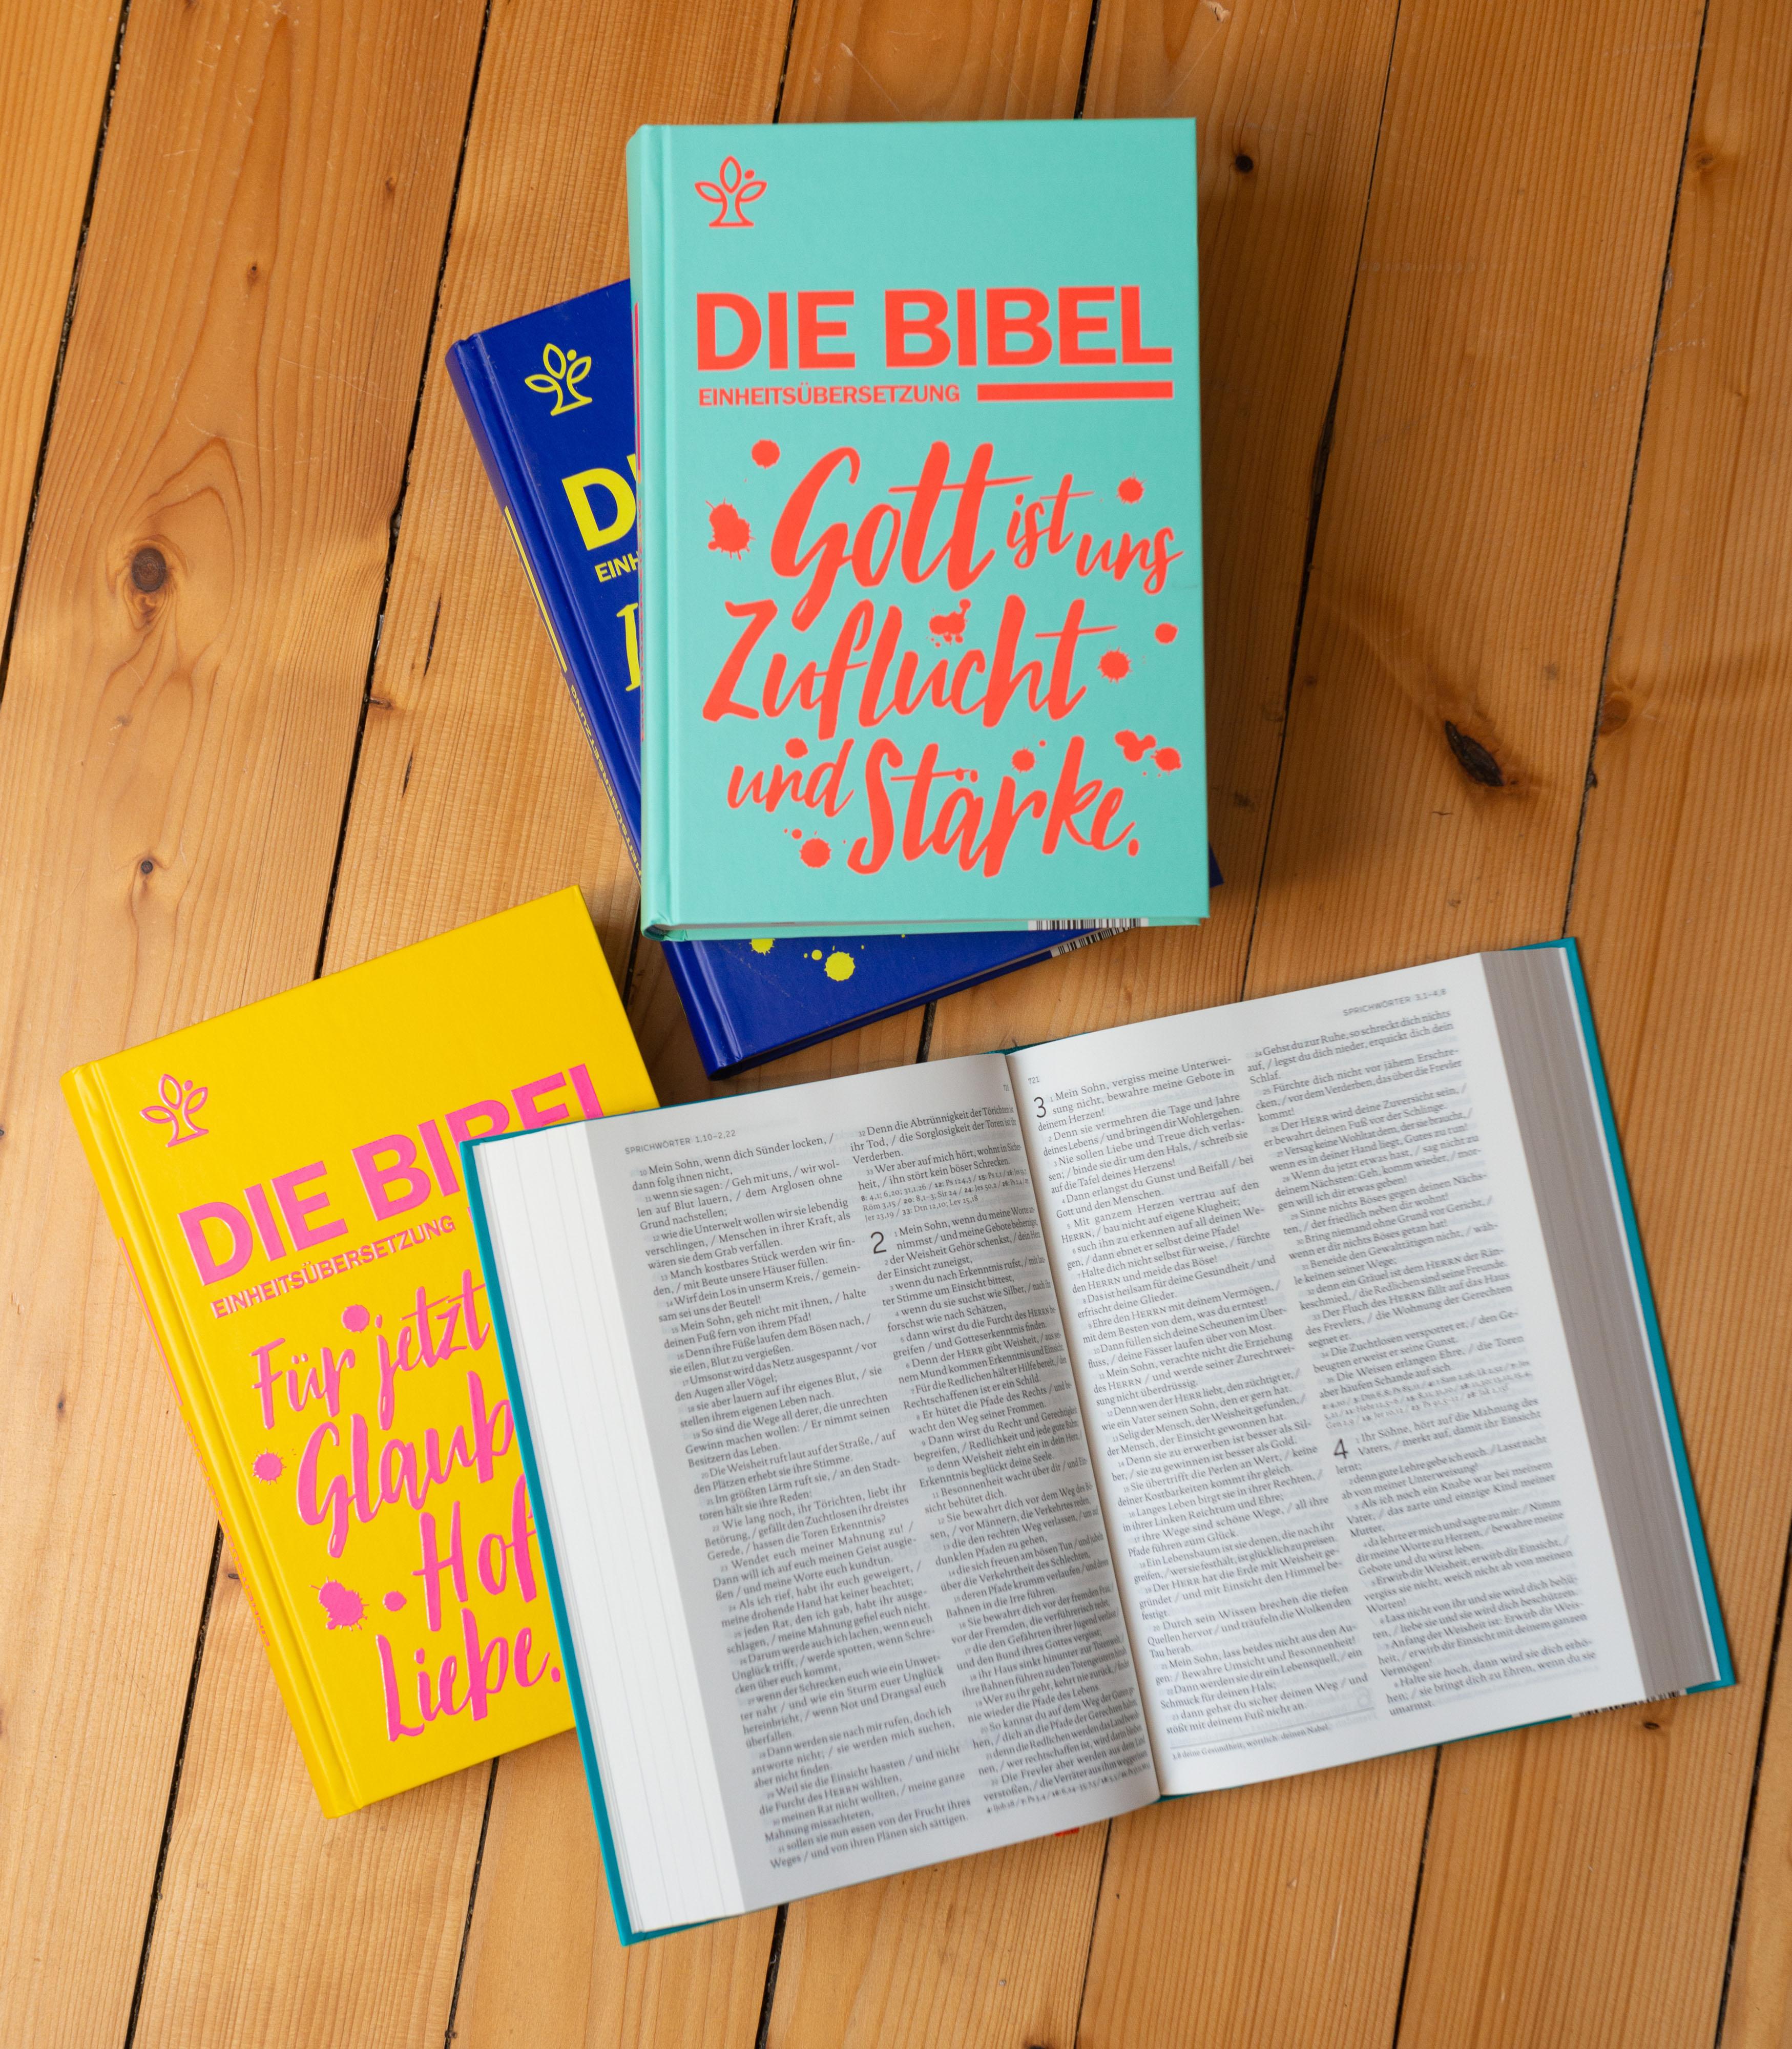 DIE BIBEL
EINHEITSÜBERSETZUNG
Gott ist uns
Zuflucht
und Stärke.
DIE BIBEL
EINHEITSÜBERSETZUNG
Für jetzt
Glaub
Hof
Liebe.
SPRICHWÖRTER 1,10–2,22
10 Mein Sohn, wenn dich Sünder locken, /
dann folg ihnen nicht,
11 wenn sie sagen: / Geh mit uns, / wir wol-
len auf Blut lauern, / dem Arglosen ohne
Grund nachstellen;
12 wie die Unterwelt wollen wir sie lebendig
verschlingen, / Menschen in ihrer Kraft, als
wären sie dem Grab verfallen.
13 Manch kostbares Stück werden wir fin-
den, / mit Beute unsere Häuser füllen.
14 Wirf dein Los in unserm Kreis, / gemein-
sam sei uns der Beutel!
15 Mein Sohn, geh nicht mit ihnen, / halte
deinen Fuß fern von ihrem Pfad!
16 Denn ihre Füße laufen dem Bösen nach, /
sie eilen, Blut zu vergießen.
17 Umsonst wird das Netz ausgespannt / vor
den Augen aller Vögel;
18 sie aber lauern auf ihr eigenes Blut, / sie
stellen ihrem eigenen Leben nach.
19 So sind die Wege all derer, die unrechten
Gewinn machen wollen: / Er nimmt seinen
Besitzern das Leben.
20 Die Weisheit ruft laut auf der Straße, / auf
den Plätzen erhebt sie ihre Stimme.
21 Im größten Lärm ruft sie, / an den Stadt-
toren hält sie ihre Reden:
22 Wie lang noch, ihr Törichten, liebt ihr
Betörung, / gefällt den Zuchtlosen ihr dreistes
Gerede, / hassen die Toren Erkenntnis?
23 Wendet euch meiner Mahnung zu! /
Dann will ich auf euch meinen Geist ausgie-
ßen / und meine Worte euch kundtun.
24 Als ich rief, habt ihr euch geweigert, /
meine drohende Hand hat keiner beachtet;
25 jeden Rat, den ich gab, habt ihr ausge-
schlagen, / meine Mahnung gefiel euch nicht.
26 Darum werde auch ich lachen, wenn euch
Unglück trifft, / werde spotten, wenn Schre-
cken über euch kommt,
27 wenn der Schrecken euch wie ein Unwet-
ter naht / und wie ein Sturm euer Unglück
hereinbricht, / wenn Not und Drangsal euch
überfallen.
28 Dann werden sie nach mir rufen, doch ich
antworte nicht; / sie werden mich suchen,
aber nicht finden.
29 Weil sie die Einsicht hassten / und nicht
die Furcht des HERRN wählten,
30 meinen Rat nicht wollten, / meine ganze
Mahnung missachteten,
31 sollen sie nun essen von der Frucht ihres
Weges / und von ihren Plänen sich sättigen.
32 Denn die Abtrünnigkeit der Törichten ist
ihr Tod, / die Sorglosigkeit der Toren ist ihr
Verderben.
33 Wer aber auf mich hört, wohnt in Siche
heit, / ihn stört kein böser Schrecken.
2 1 Mein Sohn, wenn du meine Worte
nimmst / und meine Gebote beherzigst,
2 der Weisheit Gehör schenkst, / dein Herz
der Einsicht zuneigst,
3 wenn du nach Erkenntnis rufst,
ter Stimme um Einsicht bittest,
4 wenn du sie suchst wie Silber, / nach ihr
forschst wie nach Schätzen,
5 dann wirst du die Furcht des HERRN
greifen / und Gotteserkenntnis finden.
6 Denn der HERR gibt Weisheit,
nem Mund kommen Erkenntnis und Einsicht.
7 Für die Redlichen hält er Hilfe bereit,
Rechtschaffenen ist er ein Schild.
8 Er hütet die Pfade des Rechts
wacht den Weg seiner Frommen.
9 Dann wirst du Recht und Gerechtigkeit
begreifen, / Redlichkeit und jede gute Bahn;
10 denn Weisheit zieht ein in dein Herz,
Erkenntnis beglückt deine Seele.
11 Besonnenheit wacht über dir / und Ein-
sicht behütet dich.
12 Sie bewahrt dich vor dem Weg des Bö-
sen, / vor Männern, die Verkehrtes reden,
13 die den rechten Weg verlassen,
dunklen Pfaden zu gehen,
14 die sich freuen am bösen Tun
über die Verkehrtheit des Schlechten,
15 deren Pfade krumm verlaufen
Bahnen in die Irre führen.
16 Sie bewahrt dich vor der fremden Frau,
vor der Fremden, die verführerisch redet,
17 die den Gefährten ihrer Jugend verlässt
und den Bund ihres Gottes vergisst;
18 ihr Haus sinkt hinunter zur Totenwelt,
ihre Bahnen führen zu den Totengeistern
19 Wer zu ihr geht, kehrt nie zurück,
nie wieder die Pfade des Lebens.
20 So kannst du auf dem Weg der Guten
hen, / dich an die Pfade der Gerechten halten;
21 denn die Redlichen werden das Land
nen, / wer rechtschaffen ist, wird darin bleiben
22 Die Frevler aber werden aus dem Land
verstoßen, / die Verräter aus ihm weggerissen
721
SPRICHWÖRTER 3,1–4,8
3 1 Mein Sohn, vergiss meine Unterwei-
sung nicht, bewahre meine Gebote in
deinem Herzen!
2 Denn sie vermehren die Tage und Jahre
deines Lebens / und bringen dir Wohlergehen.
3 Nie sollen Liebe und Treue dich verlas-
sen; / binde sie dir um den Hals, / schreib sie
auf die Tafel deines Herzens!
4 Dann erlangst du Gunst und Beifall / bei
Gott und den Menschen.
5 Mit ganzem Herzen vertrau auf den
HERRN, / bau nicht auf eigene Klugheit;
6 such ihn zu erkennen auf all deinen We-
gen, / dann ebnet er selbst deine Pfade!
7 Halte dich nicht selbst für weise, / fürchte
den HERRN und meide das Böse!
8 Das ist heilsam für deine Gesundheit / und
erfrischt deine Glieder.
9 Ehre den HERRN mit deinem Vermögen, /
mit dem Besten von dem, was du erntest!
10 Dann füllen sich deine Scheunen im Über-
fluss, / deine Fässer laufen über von Most.
11 Mein Sohn, verachte nicht die Erziehung
des HERRN / und werde seiner Zurechtwei-
sung nicht überdrüssig.
12 Denn wen der HERR liebt, den züchtigt er, /
wie ein Vater seinen Sohn, den er gern hat.
13 Selig der Mensch, der Weisheit gefunden, /
der Mensch, der Einsicht gewonnen hat.
14 Denn sie zu erwerben ist besser als Sil-
ber, / sie zu gewinnen ist besser als Gold.
15 Sie übertrifft die Perlen an Wert, / keine
deiner Kostbarkeiten kommt ihr gleich.
16 Langes Leben birgt sie in ihrer Rechten, /
in ihrer Linken Reichtum und Ehre;
17 ihre Wege sind schöne Wege, / all ihre
Pfade führen zum Glück.
18 Ein Lebensbaum ist sie denen, die nach ihr
greifen, / wer sie festhält, ist glücklich zu preisen.
19 Der HERR hat die Erde mit Weisheit ge-
gründet / und mit Einsicht den Himmel be-
festigt.
20 Durch sein Wissen brechen die tiefen
Quellen hervor / und träufeln die Wolken den
Tau herab.
21 Mein Sohn, lass beides nicht aus den Au-
gen: / Bewahre Umsicht und Besonnenheit!
22 Dann werden sie dir ein Lebensquell, / ein
Schmuck für deinen Hals;
23 dann gehst du sicher deinen Weg / und
stößt mit deinem Fuß nicht an.
3,8 deine Gesundheit, wörtlich: deinen Nabel.
24 Gehst du zur Ruhe, so schreckt dich nichts
auf, / legst du dich nieder, erquickt dich dein
Schlaf.
25 Fürchte dich nicht vor jähem Erschre-
cken, / vor dem Verderben, das über die Frevler
kommt!
26 Der HERR wird deine Zuversicht sein, /
er bewahrt deinen Fuß vor der Schlinge.
27 Versag keine Wohltat dem, der sie braucht, /
wenn es in deiner Hand liegt, Gutes zu tun!
28 Wenn du jetzt etwas hast, / sag nicht zu
deinem Nächsten: Geh, komm wieder, / mor-
gen will ich dir etwas geben!
29 Sinne nichts Böses gegen deinen Nächs-
ten, / der friedlich neben dir wohnt!
30 Bring niemand ohne Grund vor Gericht, /
wenn er dir nichts Böses getan hat!
31 Beneide den Gewalttätigen nicht, / wäh-
le keinen seiner Wege;
32 denn ein Gräuel ist dem HERRN der Rän-
keschmied, / die Redlichen sind seine Freunde.
33 Der Fluch des HERRN fällt auf das Haus
des Frevlers, / die Wohnung der Gerechten
segnet er.
34 Die Zuchtlosen verspottet er, / den Ge-
beugten erweist er seine Gunst.
35 Die Weisen erlangen Ehre, / die Toren
aber häufen Schande auf sich.
4 1 Ihr Söhne, hört auf die Mahnung des
Vaters, / merkt auf, damit ihr Einsicht
lernt;
2 denn gute Lehre gebe ich euch. / Lasst nicht
ab von meiner Unterweisung!
3 Als ich noch ein Knabe war bei meinem
Vater, / das zarte und einzige Kind meiner
Mutter,
4 da lehrte er mich und sagte zu mir: / Nimm
dir meine Worte zu Herzen, / bewahre meine
Gebote und du wirst leben.
5 Erwirb dir Weisheit, erwirb dir Einsicht, /
vergiss sie nicht, weich nicht ab von meinen
Worten!
6 Lass nicht von ihr und sie wird dich behü-
ten, / liebe sie und sie wird dich beschützen.
7 Anfang der Weisheit ist: Erwirb dir Weis-
heit, / erwirb dir Einsicht mit deinem ganzen
Vermögen!
8 Halte sie hoch, dann wird sie dich erhö-
hen; / sie bringt dich zu Ehren, wenn du sie
umarmst.